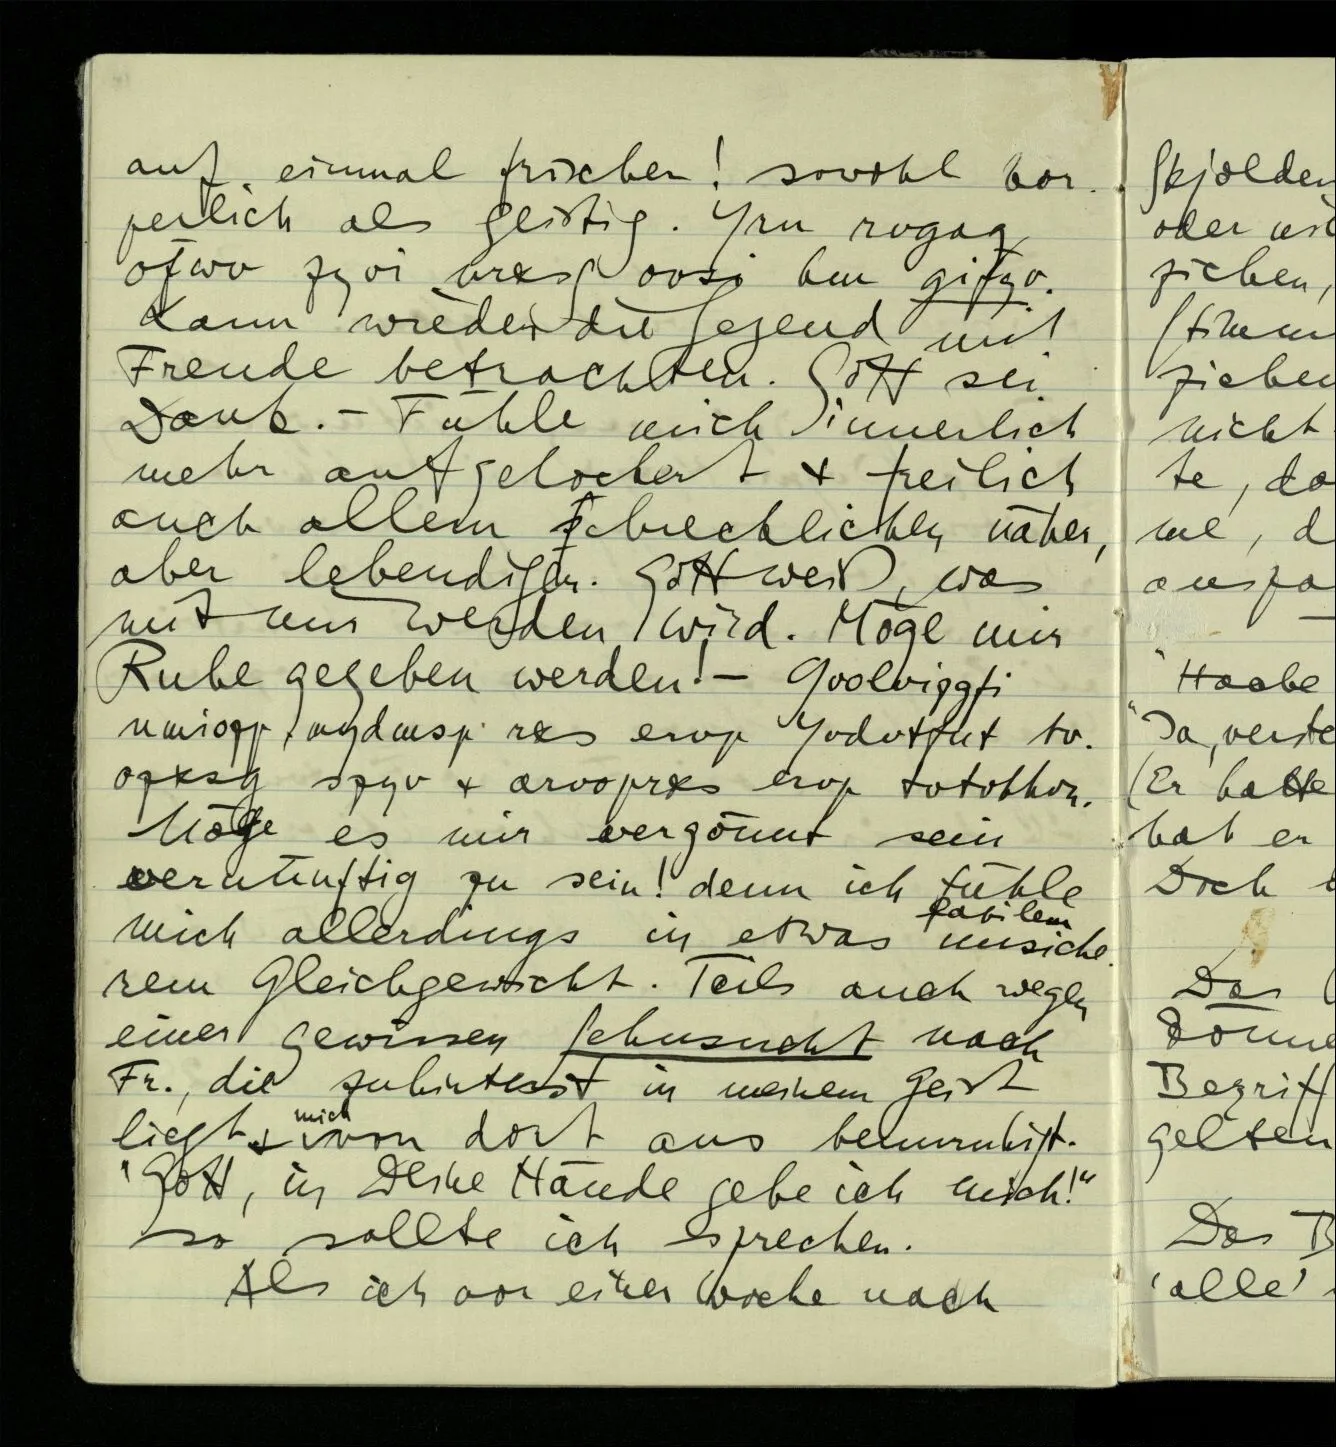 auf einmal frischer! sowohl kör-
perlich als geistig. Yrn rvgag
ofwv zyvi nrxsg ovsi hm gifzv.
Kann wieder die Gegend mit
Freude betrachten. Gott sei
Dank. – Fühle mich innerlich
mehr aufgelockert & freilich
auch allem Schrecklichen näher,
aber lebendiger. Gott weiß, was
mit mir werden wird. Möge mir
Ruhe gegeben werden! –
rxs ervp
&
Möge es mir vergönnt sein
vernünftig zu sein! denn ich fühle
mich allerdings in etwas labilem unsiche-
rem Gleichgewicht. Teils auch wegen
einer gewissen Sehnsucht nach
Fr., die zuhinterst in meinem Geist
liegt & mich von dort aus beunruhigt.
"Gott, in Deine Hände gebe ich mich!"
so sollte ich sprechen.
Als ich vor einer Woche nach
Skjolden
oder
ziehen,
ziehen
nicht
te, da
me, d
"Haabe
"Ja, verste
(Er hatte
hat er
Doch
Das
Begriff
gelten
Das B
'alle'